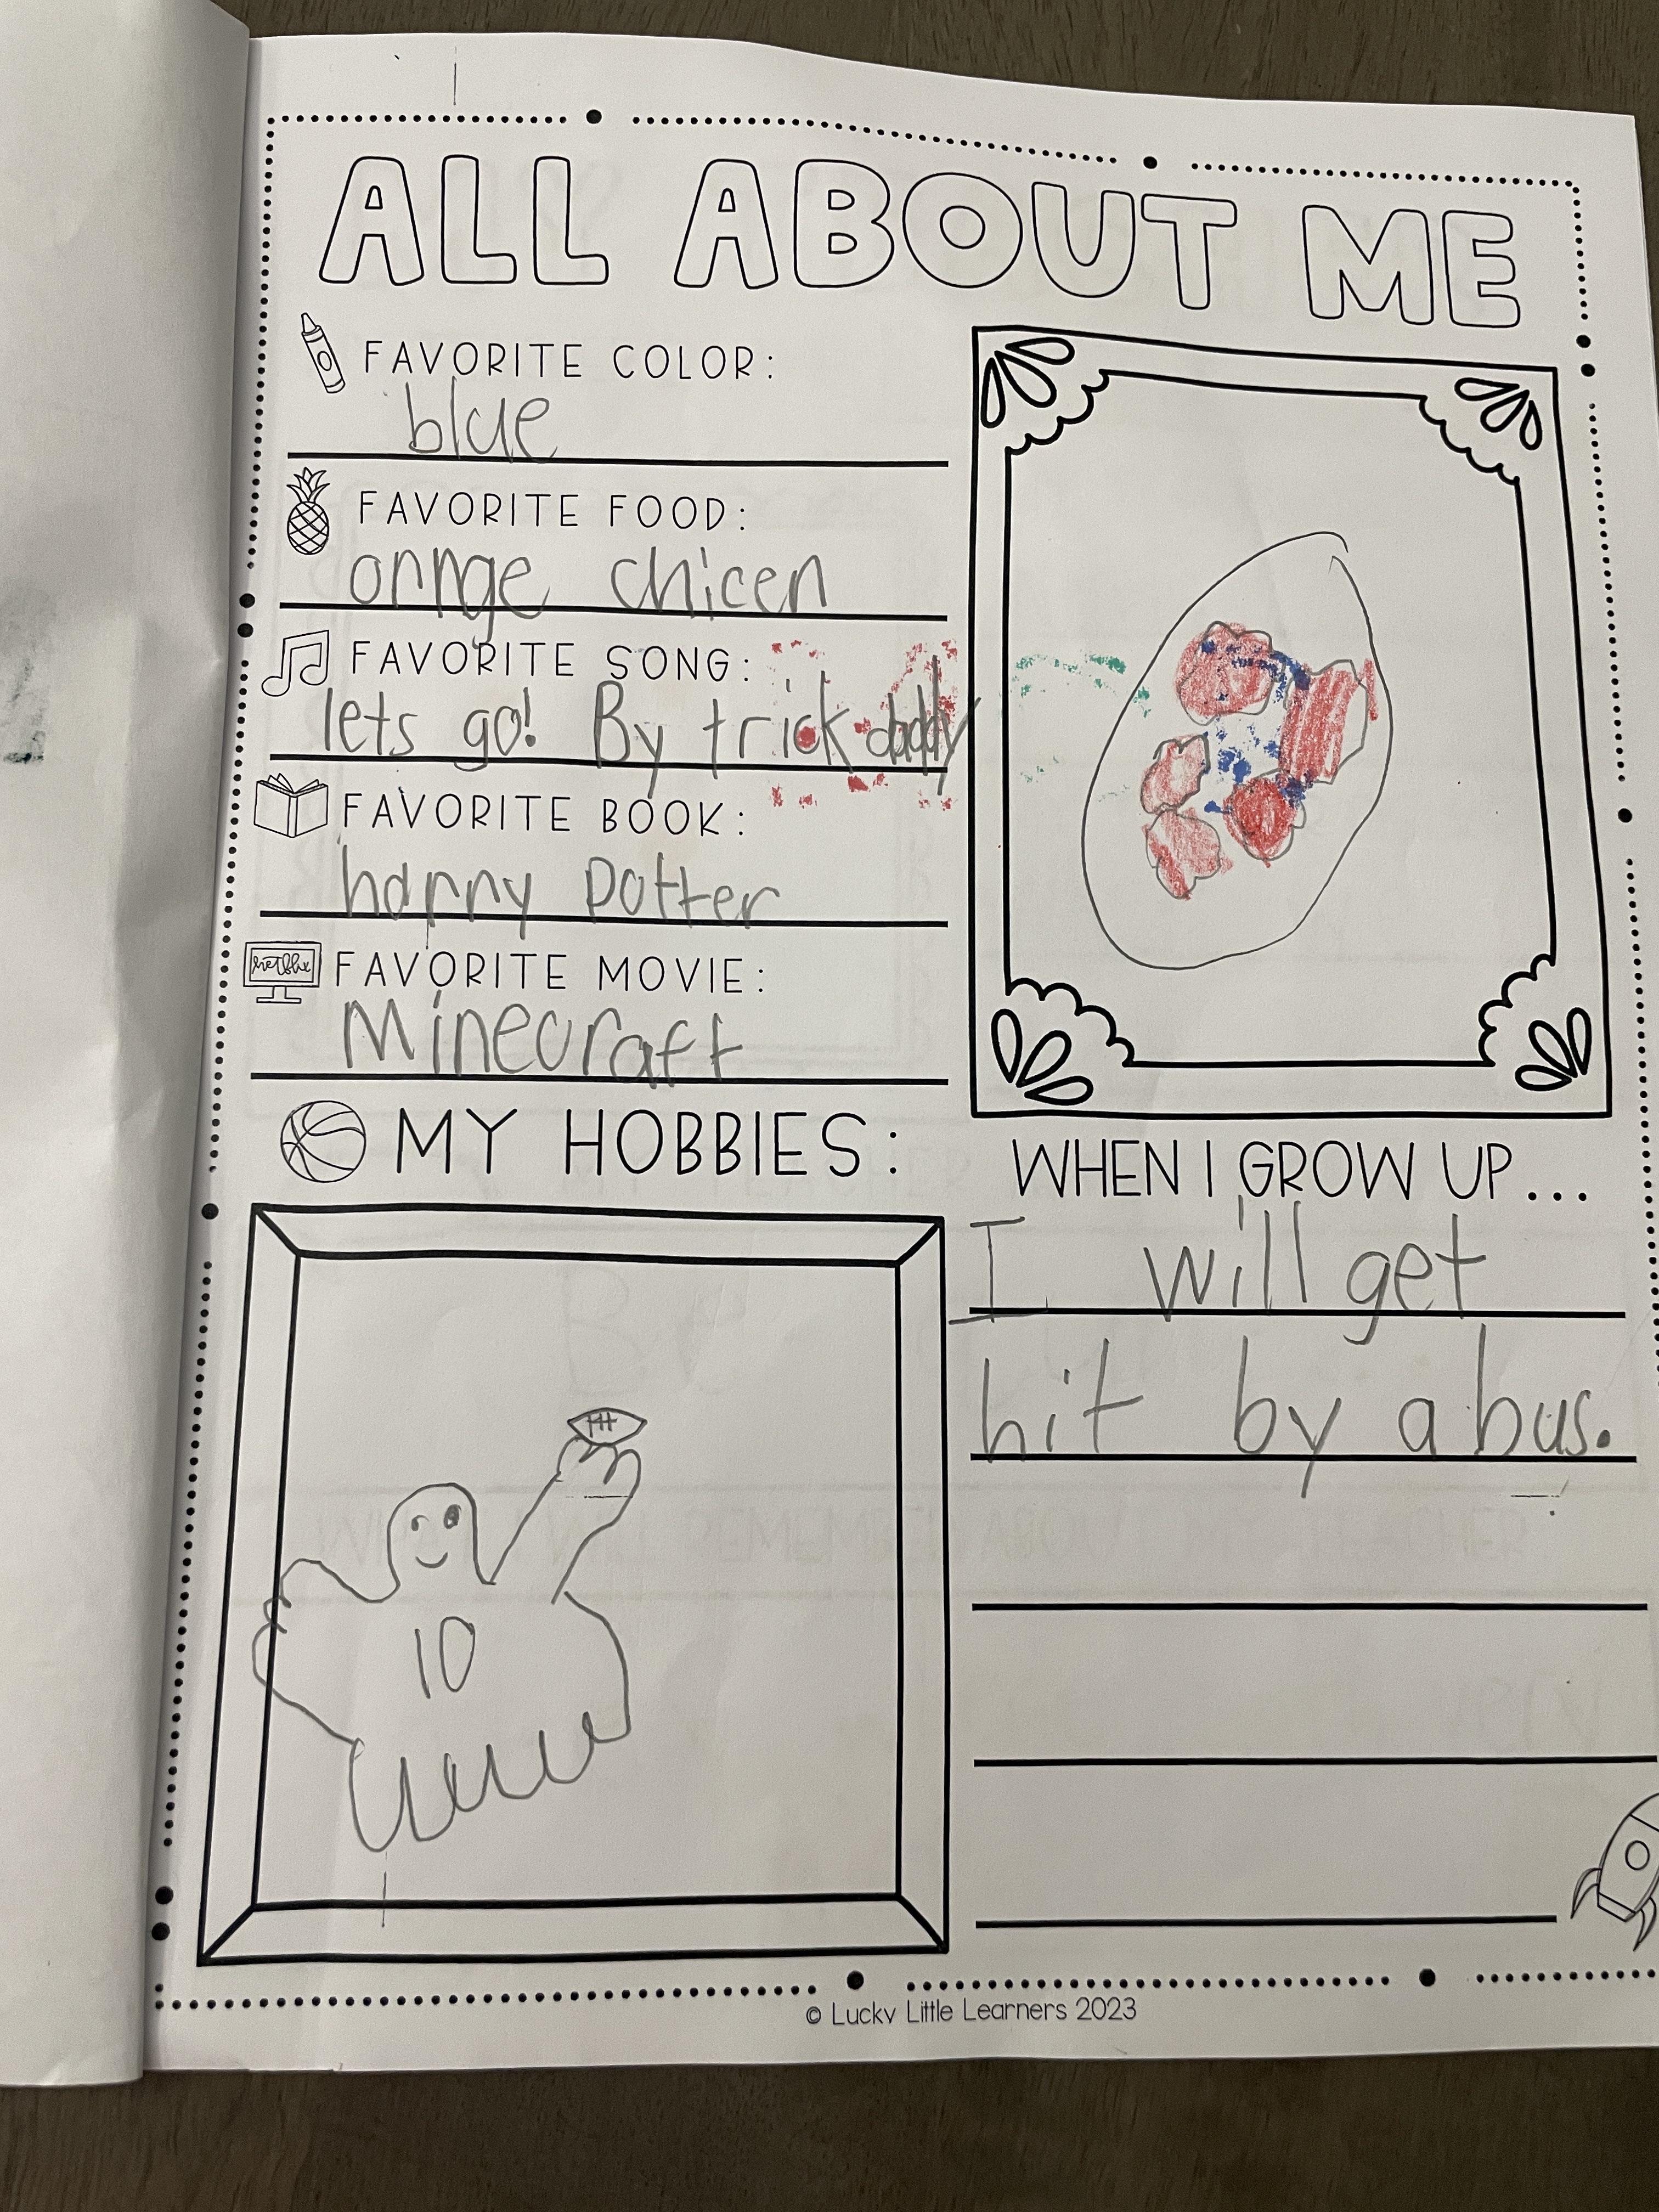 ALL ABOUT ME
FAVORITE COLOR:
blue
FAVORITE FOOD:
ornnge chicen
FAVORITE SONG:
lets go! By trick daddy
FAVORITE BOOK:
harrny potter
netflix
FAVORITE MOVIE:
Minecraft
MY HOBBIES:
10
WHEN I GROW UP...
I will get
hit by a bus.
© Lucky Little Learners 2023